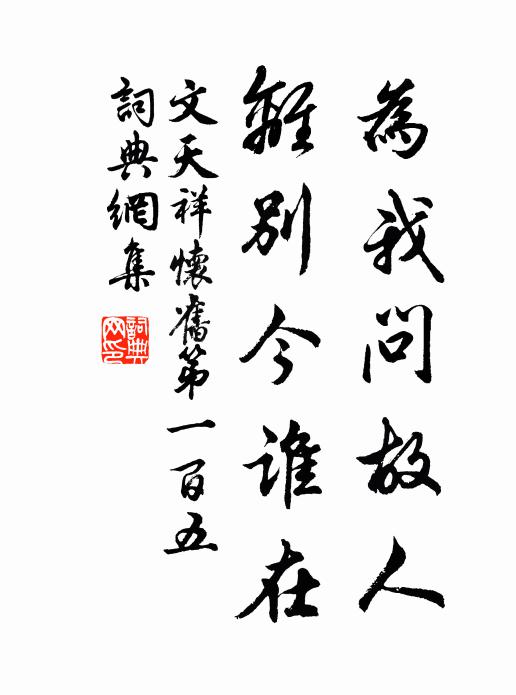 為我問故人
離別今誰在
文天祥懷舊第一百五
詞典網集
詞典
网印